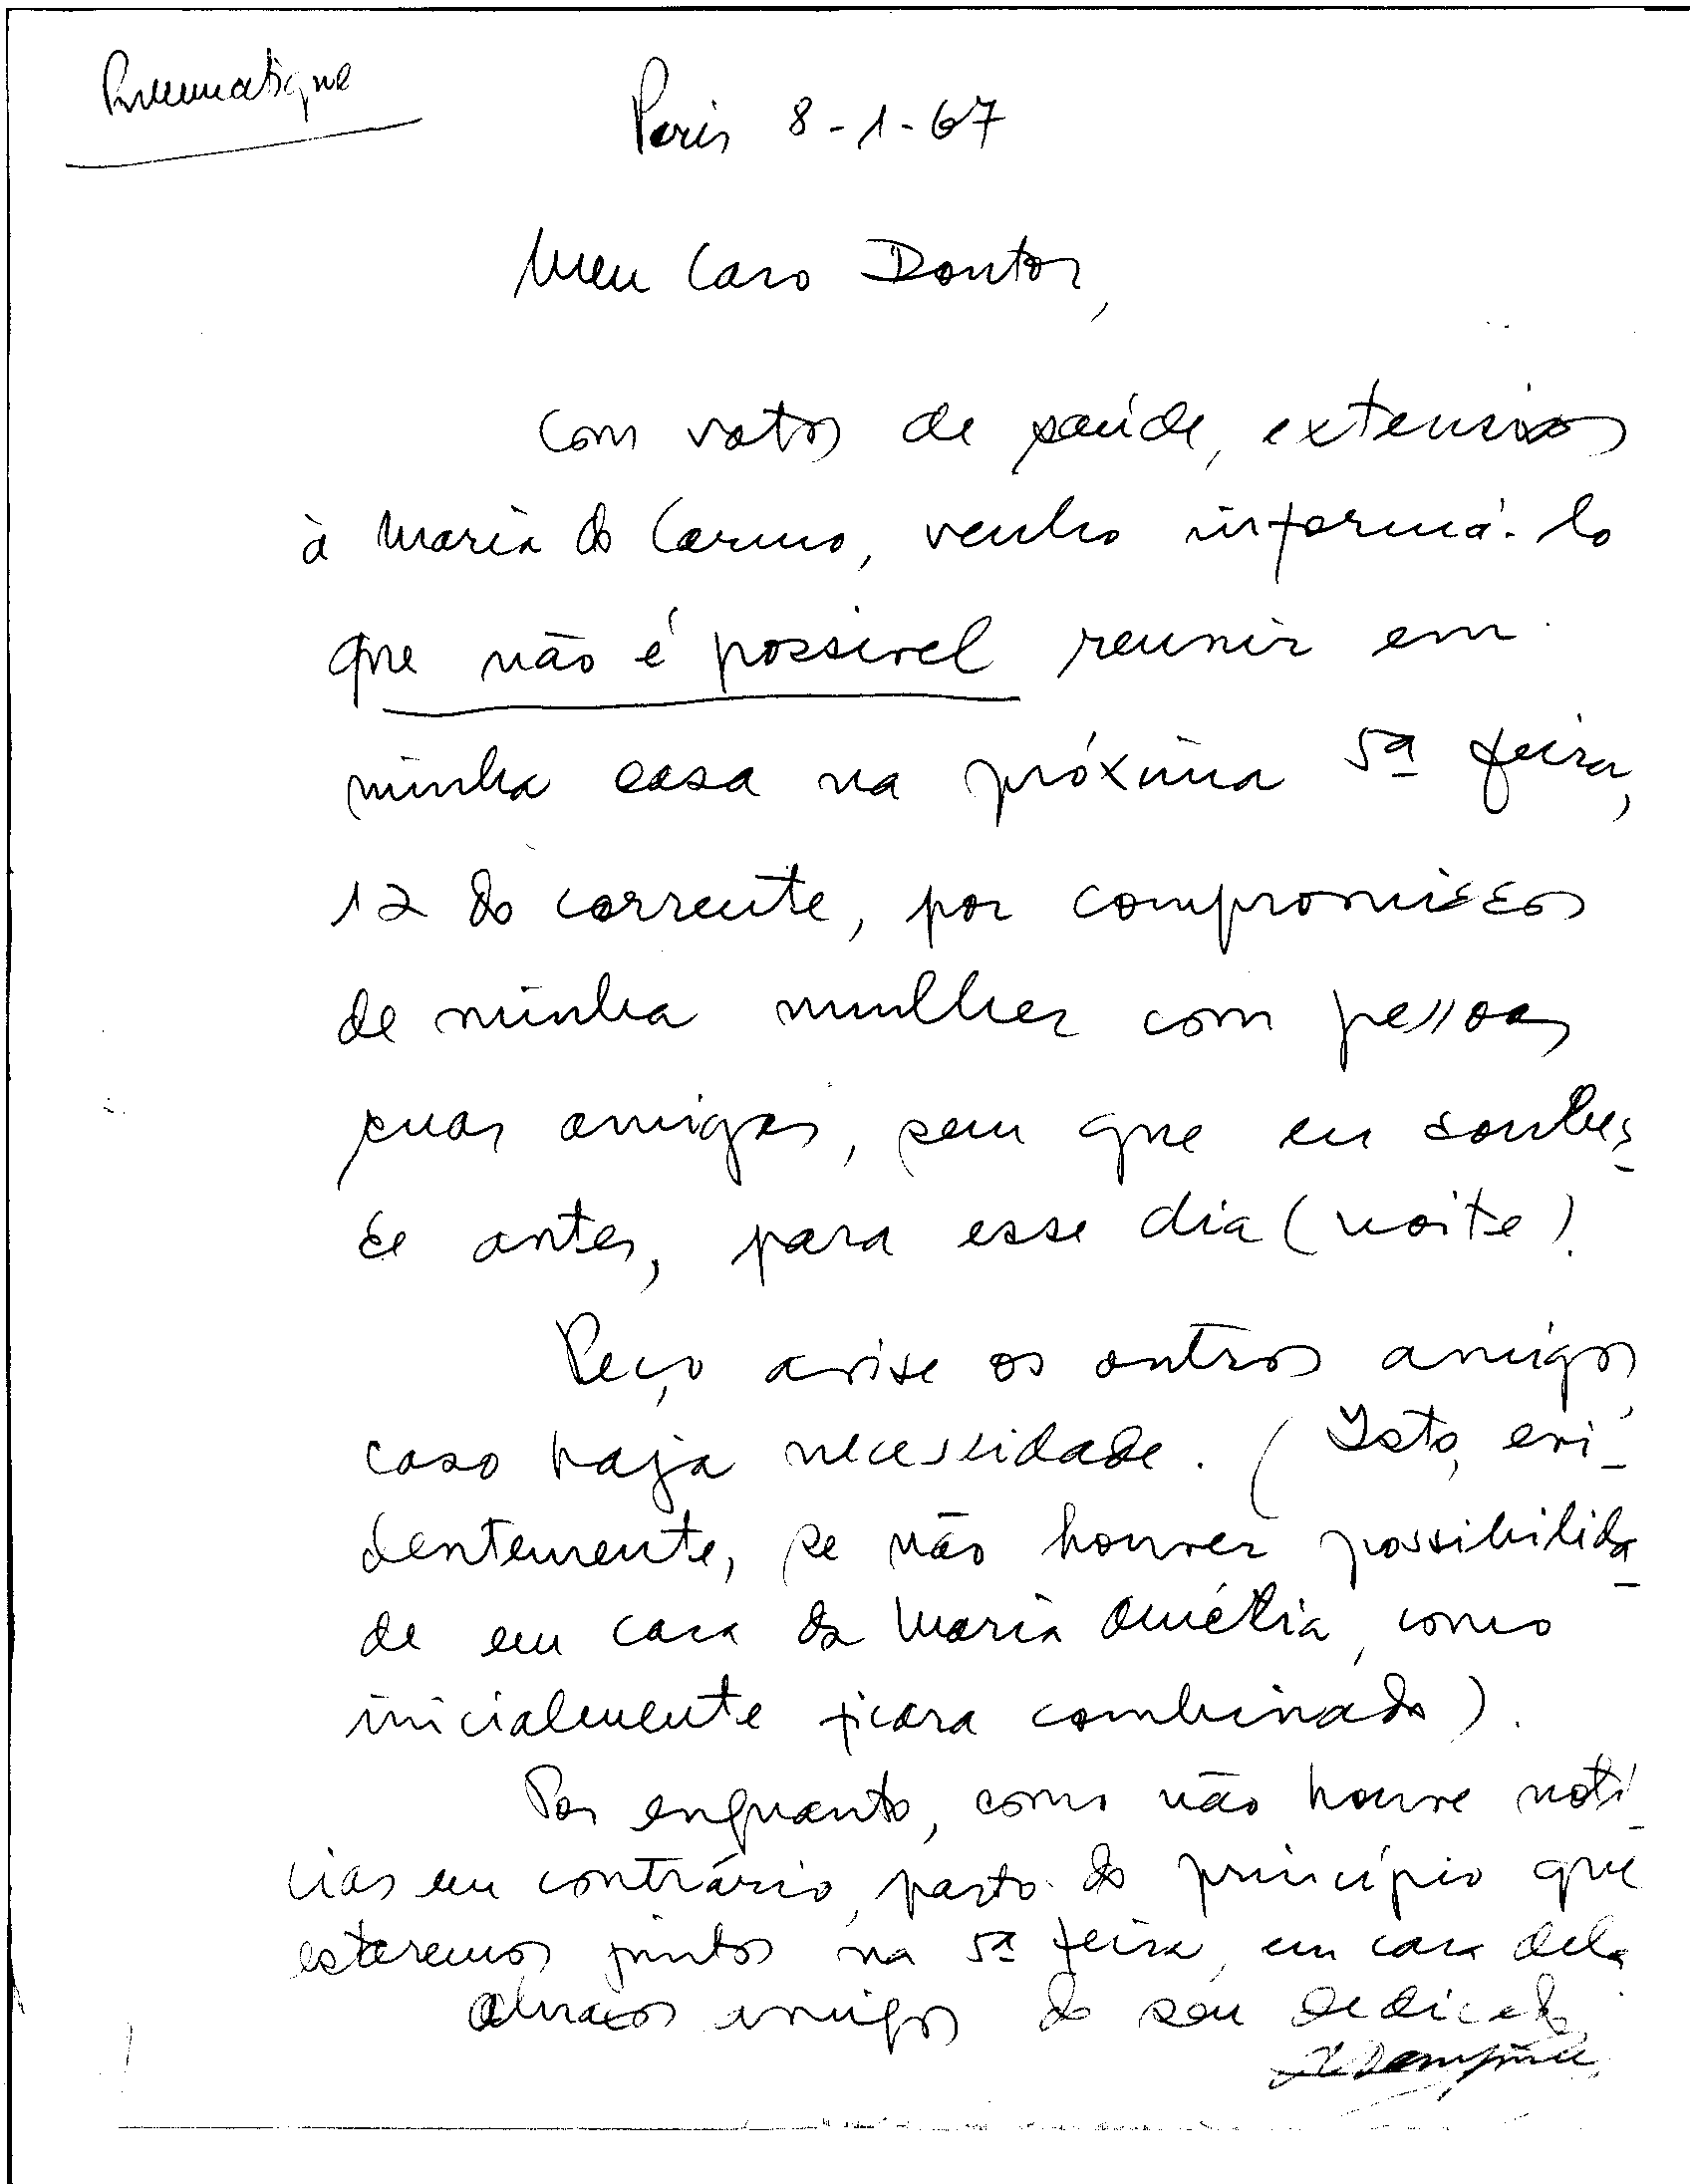 Pneumatique
Paris 8-1-67
Meu Caro Doutor,
Com votos de saúde, extensivos
à Maria do Carmo, venho informá-lo
que não é possivel reunir em
minha casa na próxima 5ª feira,
12 do corrente, por compromissos
de minha mulher com pessoas
suas amigas, sem que eu soubes-
se antes, para esse dia (noite).
Peço avise os outros amigos,
caso haja necessidade. (Isto, evi-
dentemente, se não houver possibilida-
de em casa da Maria Amélia, como
inicialmente ficara combinado).
Por enquanto, como não houve notí-
cias em contrário, parto do princípio que
estaremos juntos na 5ª feira, em casa dela
Abraços amigos do seu dedicado